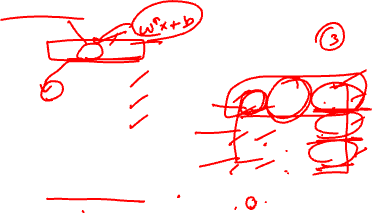 wᵀx + b
3